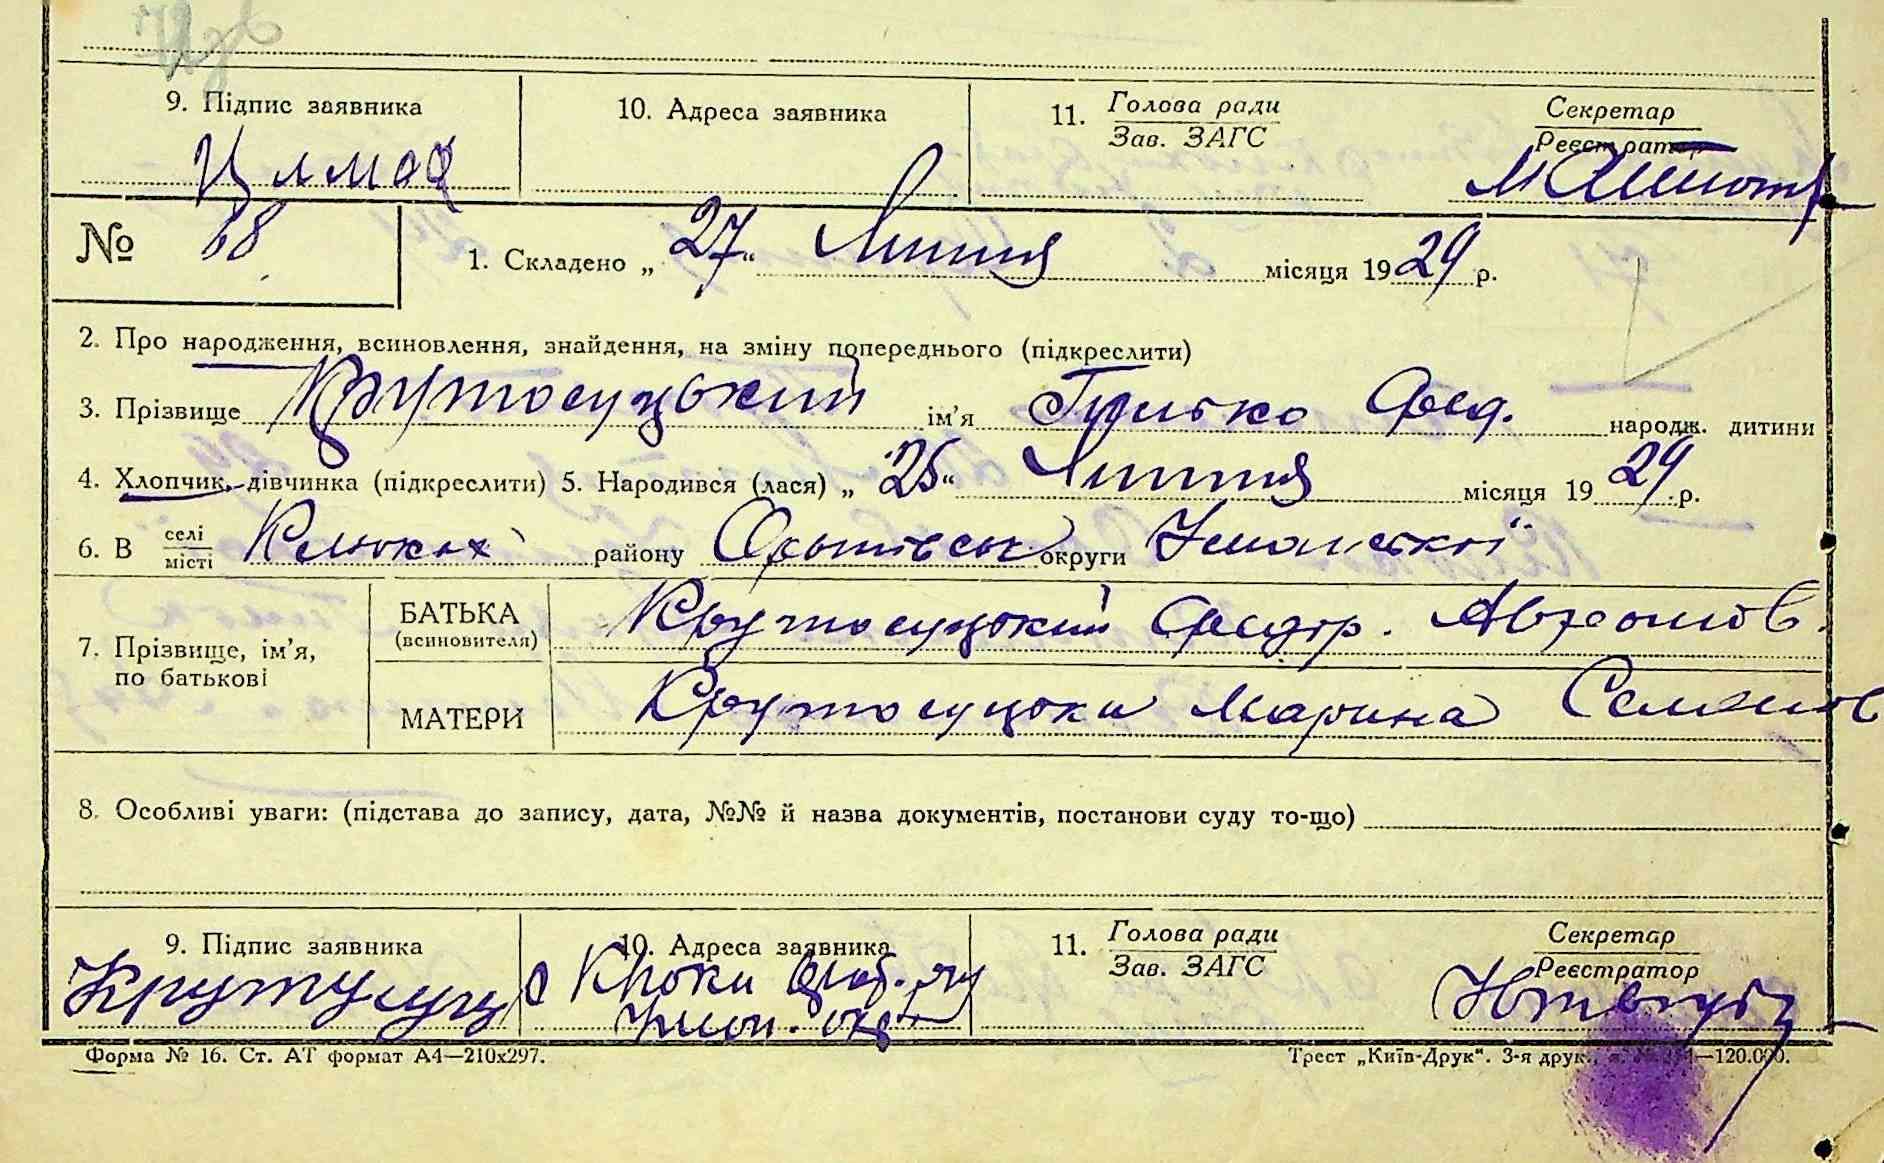 9. Підпис заявника 10. Адреса заявника 11. Голова ради Секретар
Зав. ЗАГС Реєстратор
№ 68 1. Складено „27“ Липня місяця 1929 р.
2. Про народження, всиновлення, знайдення, на зміну попереднього (підкреслити)
3. Прізвище Крутосуцький ім’я Гилько Фед. народж. дитини
4. Хлопчик, дівчинка (підкреслити) 5. Народився (лася) „25“ Липня місяця 1929 р.
6. В селі Клюках району округи Уманської
місті
7. Прізвище, ім’я,
по батькові
БАТЬКА Крутосуцький Федор.
(всиновителя)
МАТЕРИ Крутосуцька Марина Семенов
8. Особливі уваги: (підстава до запису, дата, №№ й назва документів, постанови суду то-що)
9. Підпис заявника 10. Адреса заявника 11. Голова ради Секретар
Зав. ЗАГС Реєстратор
Уман. окр
Форма № 16. Ст. АТ формат А4—210х297. Трест „Київ-Друк“. 3-я друк., —120.000.